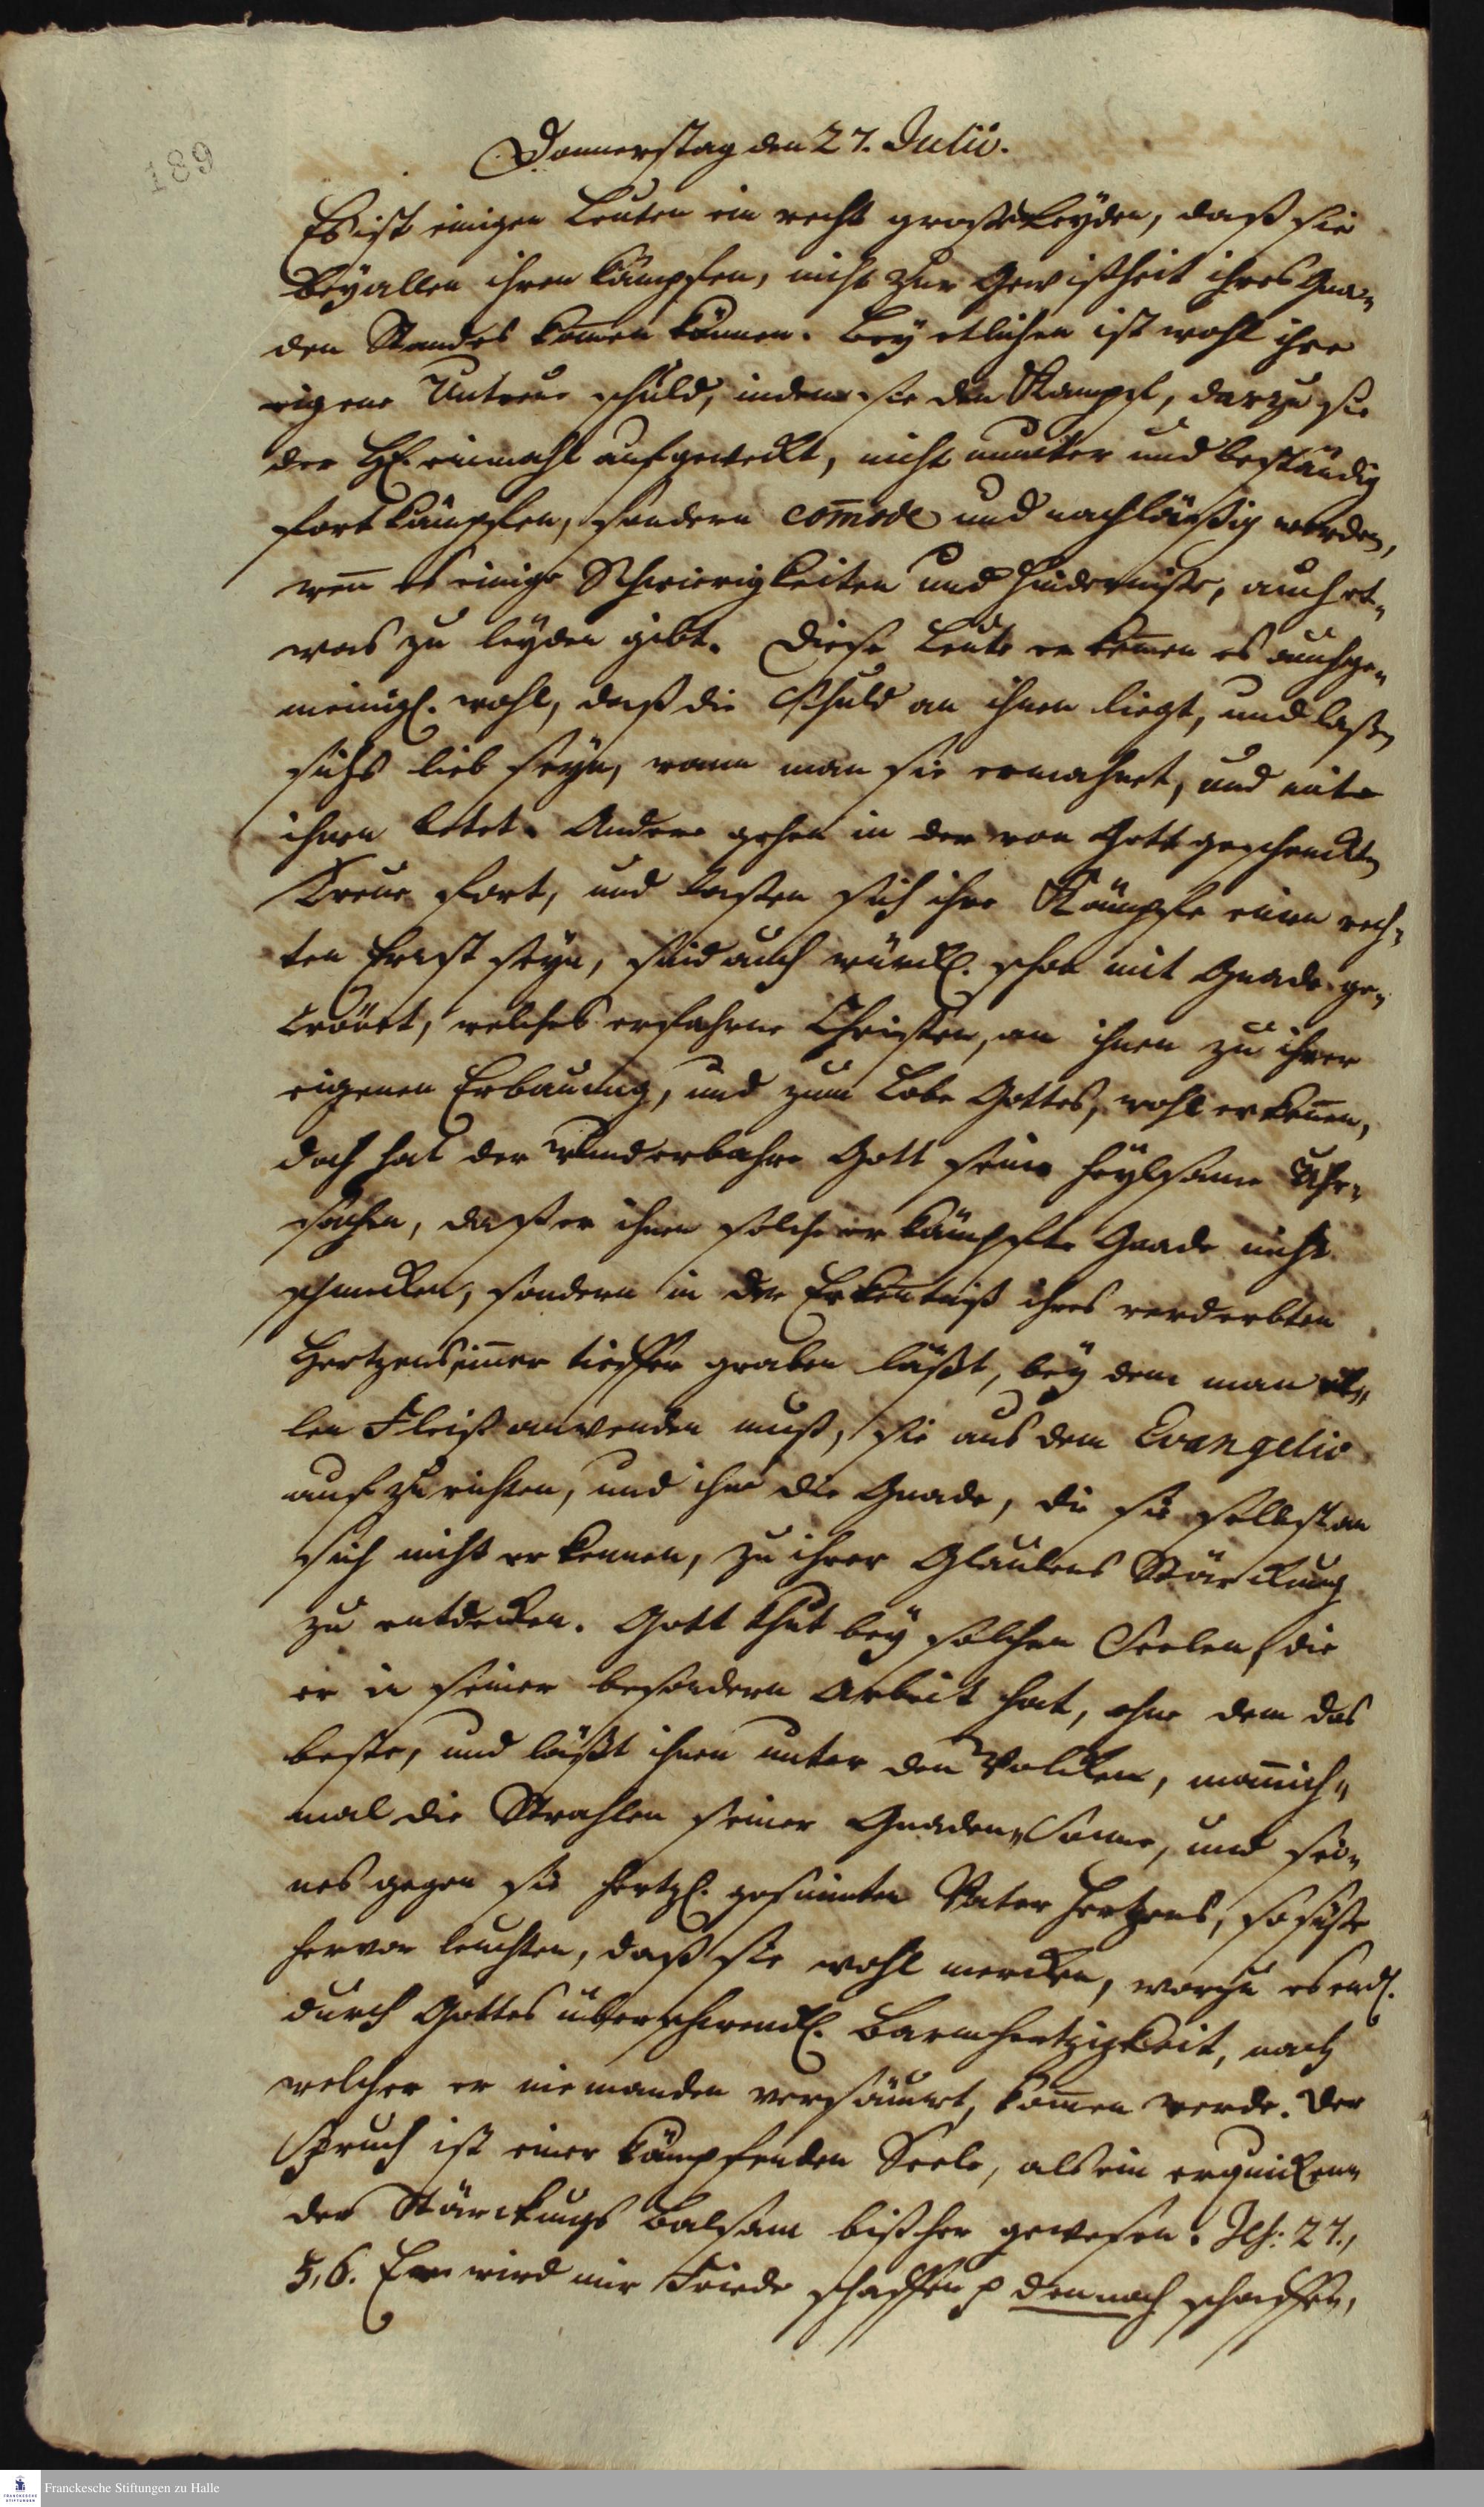 189
Donnerstag den 27. Julii.
Es ist einigen Leuten ein recht großes Leyden, daß sie
bey allen ihren kämpfen, nicht zur Gewißheit ihres Gna-
den Standes kom̄en können. Bey etlichen ist wohl ihre
eigene Untreue schuld, indem sie den Kampf, darzu sie
der HE. einmahl aufgeweckt, nicht munter und beständig
fortkämpfen, sondern com̄ode und nachläßig werden,
wen̄ es einige Schwierigkeiten und Hinderniße, auch et-
was zu leyden gibt. Diese Leute erkennen es auch ge-
meinigl. wohl, daß die Schuld an ihnen liegt, und laßen
sichs lieb seyn, wann man sie ermahnet, und mit
ihnen betet. Andere gehen in der von Gott geschenckten
Treue fort, und laßen sich ihre Kämpfe einen rech-
ten Ernst seyn, sind auch würckl. schon mit Gnade ge-
crönet, welches erfahrne Christen, an ihnen zu ihrer
eigenen Erbauung, und zum Lobe Gottes, wohl erken̄en,
doch hat der wunderbahre Gott seine heylsame Uhr-
sachen, daß er ihnen solche erkämpfte Gnade nicht
schmecken, sondern in der Erken̄tniß ihres verderbten
Hertzens im̄er tieffer graben läßt, bey dem man al-
len Fleiß anwenden muß, sie aus dem Evangelio
aufzurichten, und ihn die Gnade, die sie selbst an
sich nicht erkennen, zu ihrer Glaubens Stärckung
zu entdecken. Gott thut bey solchen Seelen, die
er in seiner besondern Arbeit hat, ohne dem das
beste, und läßt ihnen unter den Wolcken, man̄ich-
mal die Strahlen seiner Gnaden-Sonne, und sei-
nes gegen sie hertzl. gesinnten Vater Hertzens, so süße
hervor leuchten, daß sie wohl mercken, worzu es endl.
durch Gottes überschwendl. Barmhertzigkeit, nach
welcher er niemanden versäumt, kom̄en werde. Der
Spruch ist einer kämpfenden Seele, als ein erquicken-
der Stärckungs Balsam bißher gewesen. Jes: 27.,
5,6. Er wird mir Friede schaffen p dennoch schaffen,
Franckesche Stiftungen zu Halle